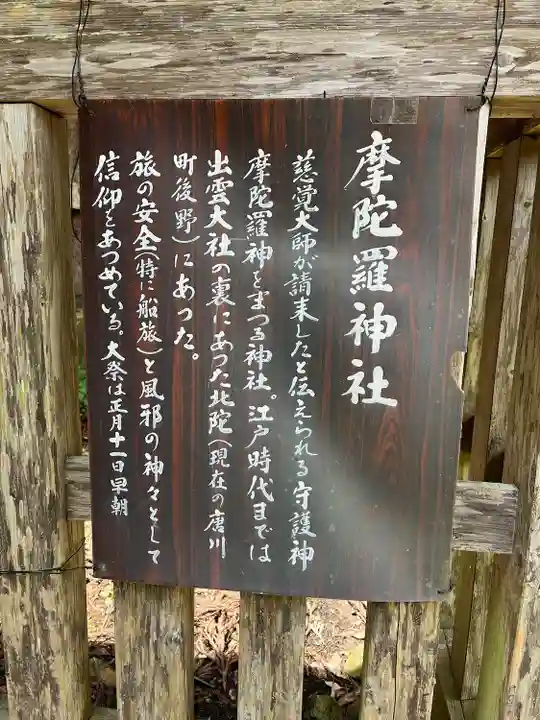 摩陀羅神社
慈覚大師が請来したと伝えられる守護神
摩陀羅神をまつる神社。江戸時代までは
出雲大社の裏にあった北陀(現在の唐川
町後野)にあった。
旅の安全(特に船旅)と風邪の神々として
信仰をあつめている。大祭は正月十一日早朝